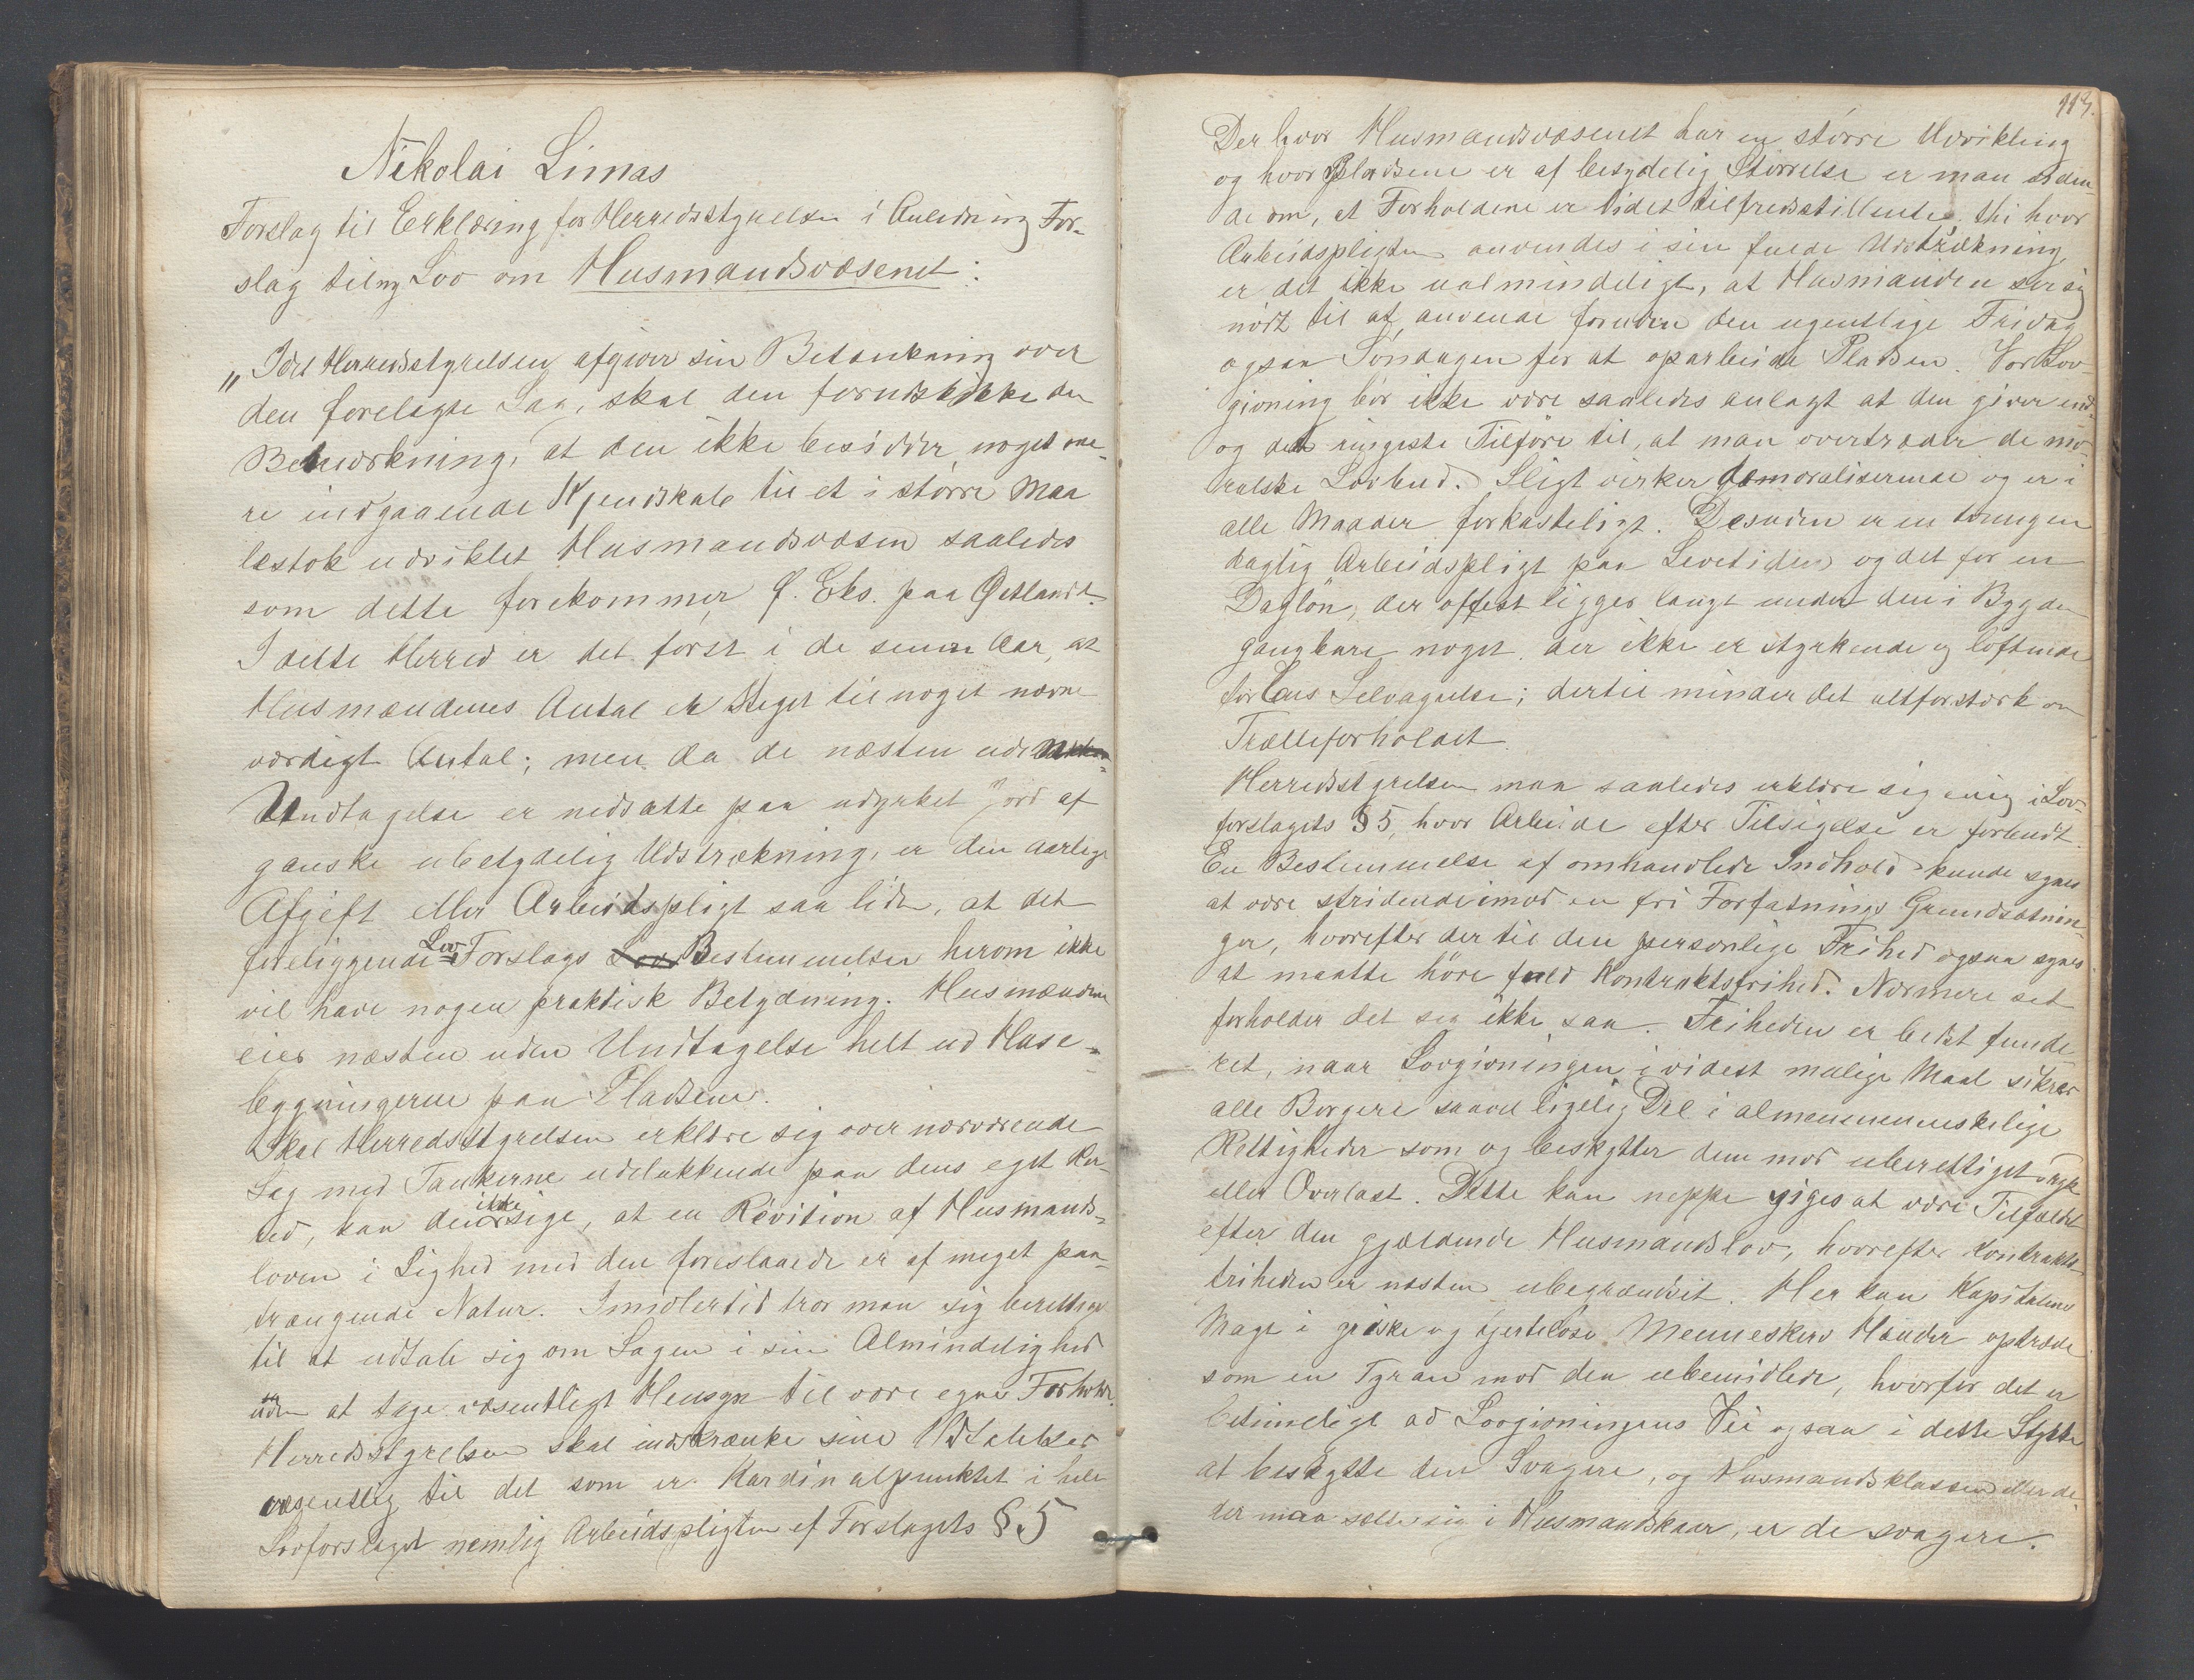 Nikolai Limas
Forslag til Erklæring for Herredsstyrelsen i Anledning For-
slag til ny Lov om Husmandsvæsenet:
"Idet Herredsstyrelsen afgiver sin Betænkning over
den forelagte Sag, skal den forudskikke den
Bemærkning, at den ikke besidder noget næ-
re indgaaende Kjendskab til et i større Maa
lestok udviklet Husmandsvæsen saaledes
som dette forekommer f. Eks. paa Østlandet.
I dette Herred er det først i de senere Aar, at
Husmændenes Antal er steget til noget nævne
værdigt Antal; men da de næsten uden
Undtagelse er nedsatte paa udyrket Jord af
ganske ubetydelig Udstrækning, er den aarlige
Afgift eller Arbeidspligt saa liden, at det
foreliggende Lov-Forslags Lov Bestemmelser herom ikke
vil have nogen praktisk Betydning. Husmændene
eier næsten uden Undtagelse helt ud Huse-
byggningerne paa Pladsene.
Skal Herredsstyrelsen erklære sig over nærværende
Sag med Tankerne udelukkende paa dens eget Her-
red, kan den ikke sige, at en Revision af Husmands-
loven i Lighed med den foreslaaede er af meget paa-
trængende Natur. Imidlertid tror man sig berettiget
til at udtale sig om Sagen i sin Almindelighed
uden at tage væsentligt Hensyn til vore egne Forholde.
Herredsstyrelsen skal indskrænke sine Udtalelser
væsentlig til det som er Kardinalpunktet i hele
Lovforslaget nemlig Arbeidspligten cf Forslagets § 5
113.
Der hvor Husmandsvæsenet har en større Udvikling
og hvor Pladsene er af betydelig Størrelse er man viden-
de om, at Forholdene er lidet tilfredsstillende. thi hvor
Arbeidspligten anvendes i sin fulde Udstrækning,
er det ikke ualmindeligt, at Husmanden ser sig
nødt til at anvende foruden den ugentlige Fridag
ogsaa Søndagen for at oparbeide Pladsen. Vor Lov-
givning bør ikke være saaledes anlagt at den giver end-
og det ringeste Tilføre til, at man overtræder de mo-
ralske Lovbud. Sligt virker demoraliserende og er i
alle Maader forkasteligt. Desuden er en tvungen
daglig Arbeidspligt paa Livstiden og det for en
Dagløn, der oftest ligger langt under den i Bygden
gangbare noget, der ikke er styrkende og løftende
for Ens Selvagtelse; dertil minder det altfor stærk om
Trælleforholdet.
Herredsstyrelsen maa saaledes erklære sig enig i Lov-
forslagets § 5, hvor Arbeide efter Tilsigelse er forbudt.
En Bestemmelse af omhandlede Indhold kunde synes
at være stridende imod en fri Forfatnings Grundsætnin-
ger, hvorefter der til den personlige Frihed ogsaa synes
at maatte høre fuld Kontraktsfrihed. Nærmere set
forholder det sig ikke saa. Friheden er bedst funde-
ret, naar Lovgivningen i videst mulige Maal sikrer
alle Borgere saavel ligelig Del i almenmenneskelige
Rettigheder som og beskytter dem mod uberettiget Tryk
eller Overlast. Dette kan neppe siges at være Tilfældet
efter den gjældende Husmandslov, hvorefter Kontrakts-
friheden er næsten ubegrændset. Her kan Kapitalens
Magt i griske og hjerteløse Menneskers Hænder optræde
som en Tyran mod den ubemidlede, hvorfor det er
betimeligt ad Lovgivningens Vei ogsaa i dette Stykke
at beskytte den Svagere, og Husmandsklassen eller de,
der maa sætte sig i Husmandskaar, er de svagere.